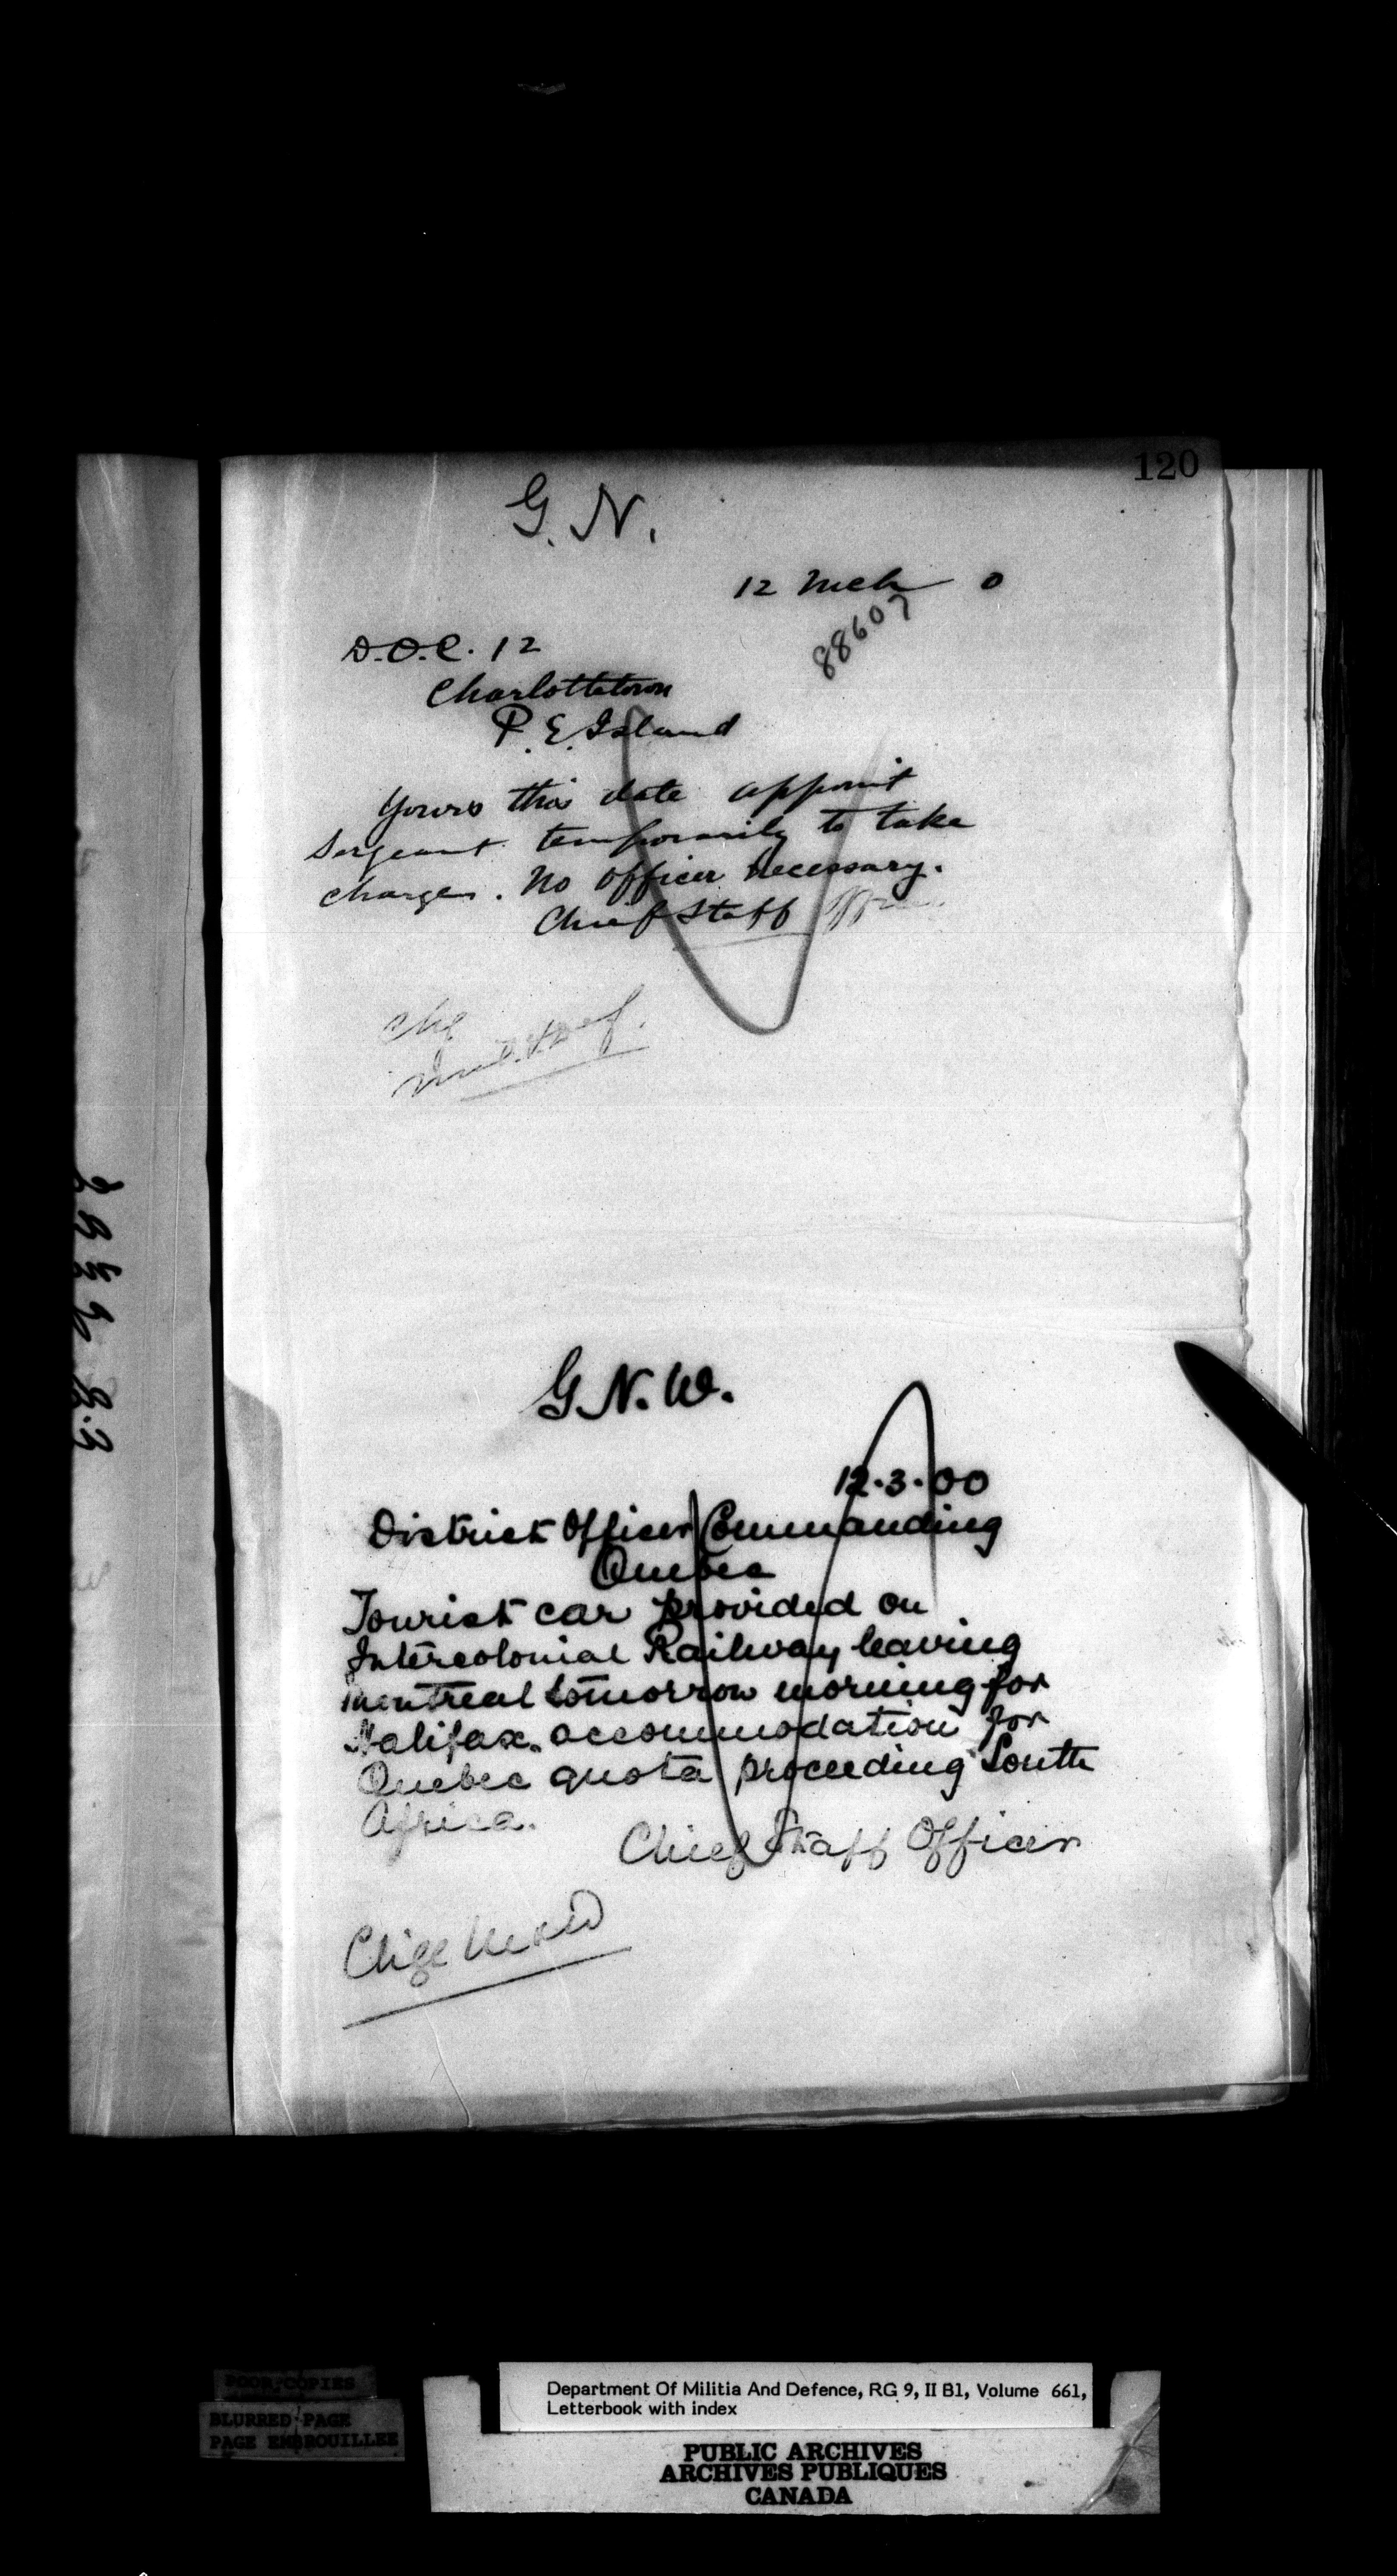 120
G. N.
12 Mch 0
88607
D.O.C. 12
Charlottetown
P. E. Island
Yours this date appoint
Sergeant temporarily to take
charge. No Officer necessary.
Chief Staff Officer
Chg
Mil. & Def.
G. N. W.
12.3.00
District Officer Commanding
Quebec
Tourist car provided on
Intercolonial Railway leaving
Montreal tomorrow morning for
Halifax. accommodation for
Quebec quota proceeding South
Africa.
Chief Staff Officer
Chge M & D
POOR COPIES
BLURRED PAGE
PAGE EMBROUILLEE
Department Of Militia And Defence, RG 9, II B1, Volume 661,
Letterbook with index
PUBLIC ARCHIVES
ARCHIVES PUBLIQUES
CANADA